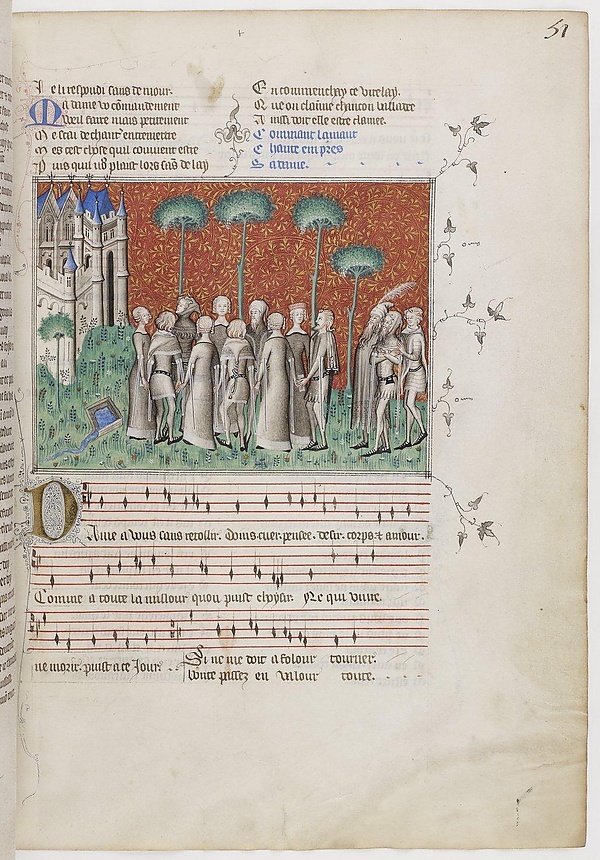 51
Je li respondi sans demour.
Ma dame vo commandement
Vueil faire mais petitement
Me scai de chant entremettre
Mes cest chose qui couvient estre
Puis quil vous plaist lors sans delay
Encommenchay ce virelay.
Que on claime chancon balladee
Ainssi doit elle estre clamee.
Comment lamant
chante empres
Sa dame.
Dame a vous sans retollir. Doins cuer. pensee. desir. corps et amour.
Comme a toute la millour quon puist choysir. Ne qui vivre.
ne morir. puist a ce jour.
Si ne me doit a folour tourner.
bonte passez en valour toute.